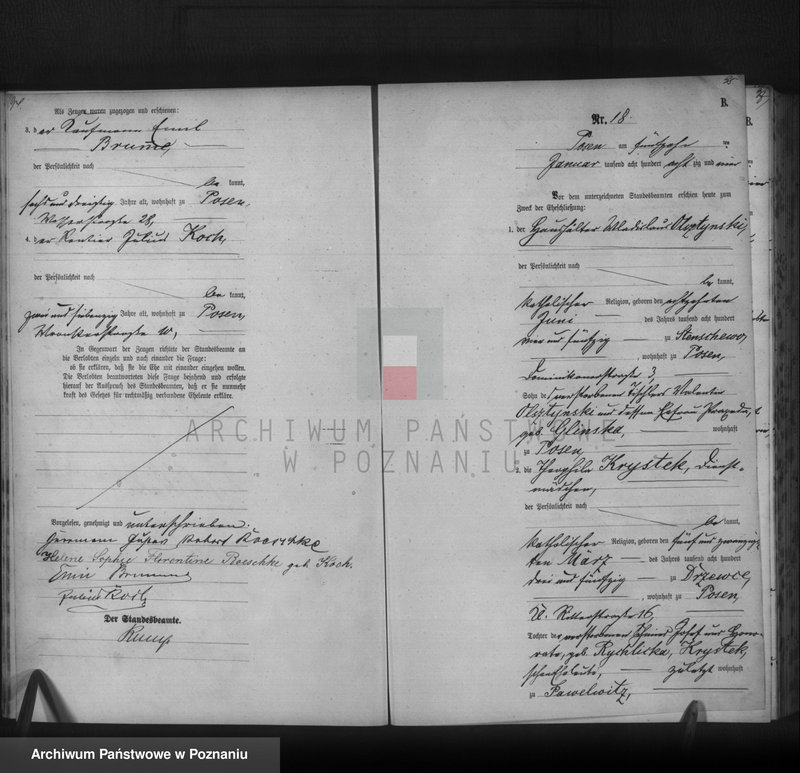 Als Zeugen waren zugezogen und erschienen:
3. der Kaufmann Emil
Brumme,
der Persönlichkeit nach
be kannt,
sechs und dreißig Jahre alt, wohnhaft zu Posen,
Wasserstraße 28,
4. der Rentier Julius Koch,
der Persönlichkeit nach
be kannt,
zwei und siebenzig Jahre alt, wohnhaft zu Posen,
Wronkerstraße 10,
In Gegenwart der Zeugen richtete der Standesbeamte an
die Verlobten einzeln und nach einander die Frage:
ob sie erklären, daß sie die Ehe mit einander eingehen wollen.
Die Verlobten beantworteten diese Frage bejahend und erfolgte
hierauf der Ausspruch des Standesbeamten, daß er sie nunmehr
kraft des Gesetzes für rechtmäßig verbundene Eheleute erkläre.
Vorgelesen, genehmigt und unterschrieben.
Herrmann Robert
Helene Sophie Florentine Roeschke geb. Koch.
Emil Brumme
Julius Koch
Der Standesbeamte.
B.
Nr. 18.
Posen am fünfzehn ten
Januar tausend acht hundert acht zig und vier
Vor dem unterzeichneten Standesbeamten erschien heute zum
Zweck der Eheschließung:
1. der Haushälter Wladislaus Olsztynski,
der Persönlichkeit nach
be kannt,
katholischer Religion, geboren den achtzehnten
Juni des Jahres tausend acht hundert
vier und fünfzig zu Stenschewo,
, wohnhaft zu Posen,
Dominikanerstraße 3,
Sohn des verstorbenen Tischlers Valentin
Olsztynski und dessen Ehefrau
geb. Glinska, wohnhaft
zu Posen,
2. die Theophila Krystek, Dienst-
mädchen,
be kannt,
katholischer Religion, geboren den fünf und zwanzig-
ten März des Jahres tausend acht hundert
drei und fünfzig zu Drzewce,
, wohnhaft zu Posen,
U. Ritterstraße 16,
Tochter der verstorbenen Josef und Hono-
rata, geb. Rychlicka, Krystek
schen Eheleute, zuletzt wohnhaft
zu Pawelwitz,
B.
ARCHIWUM PAŃSTWOWE
W POZNANIU
Archiwum Państwowe w Poznaniu